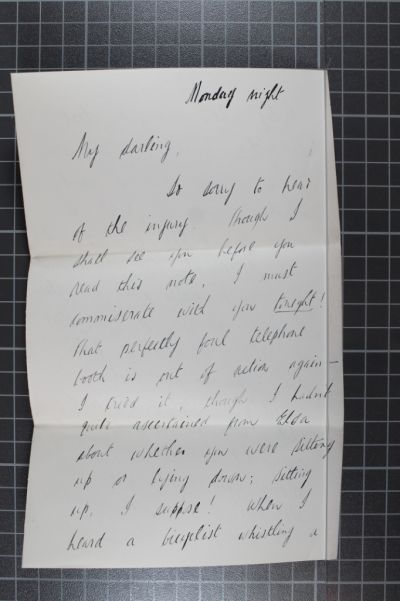 Monday night
My darling,
So sorry to hear
of the injury. Though I
shall see you before you
read this note, I must
commiserate with you tonight!
That perfectly foul telephone
booth is out of action again —
I tried it, though I hadn't
quite ascertained from
about whether you were sitting
up or lying down; sitting
up, I suppose! When I
heard a bicyclist whistling a